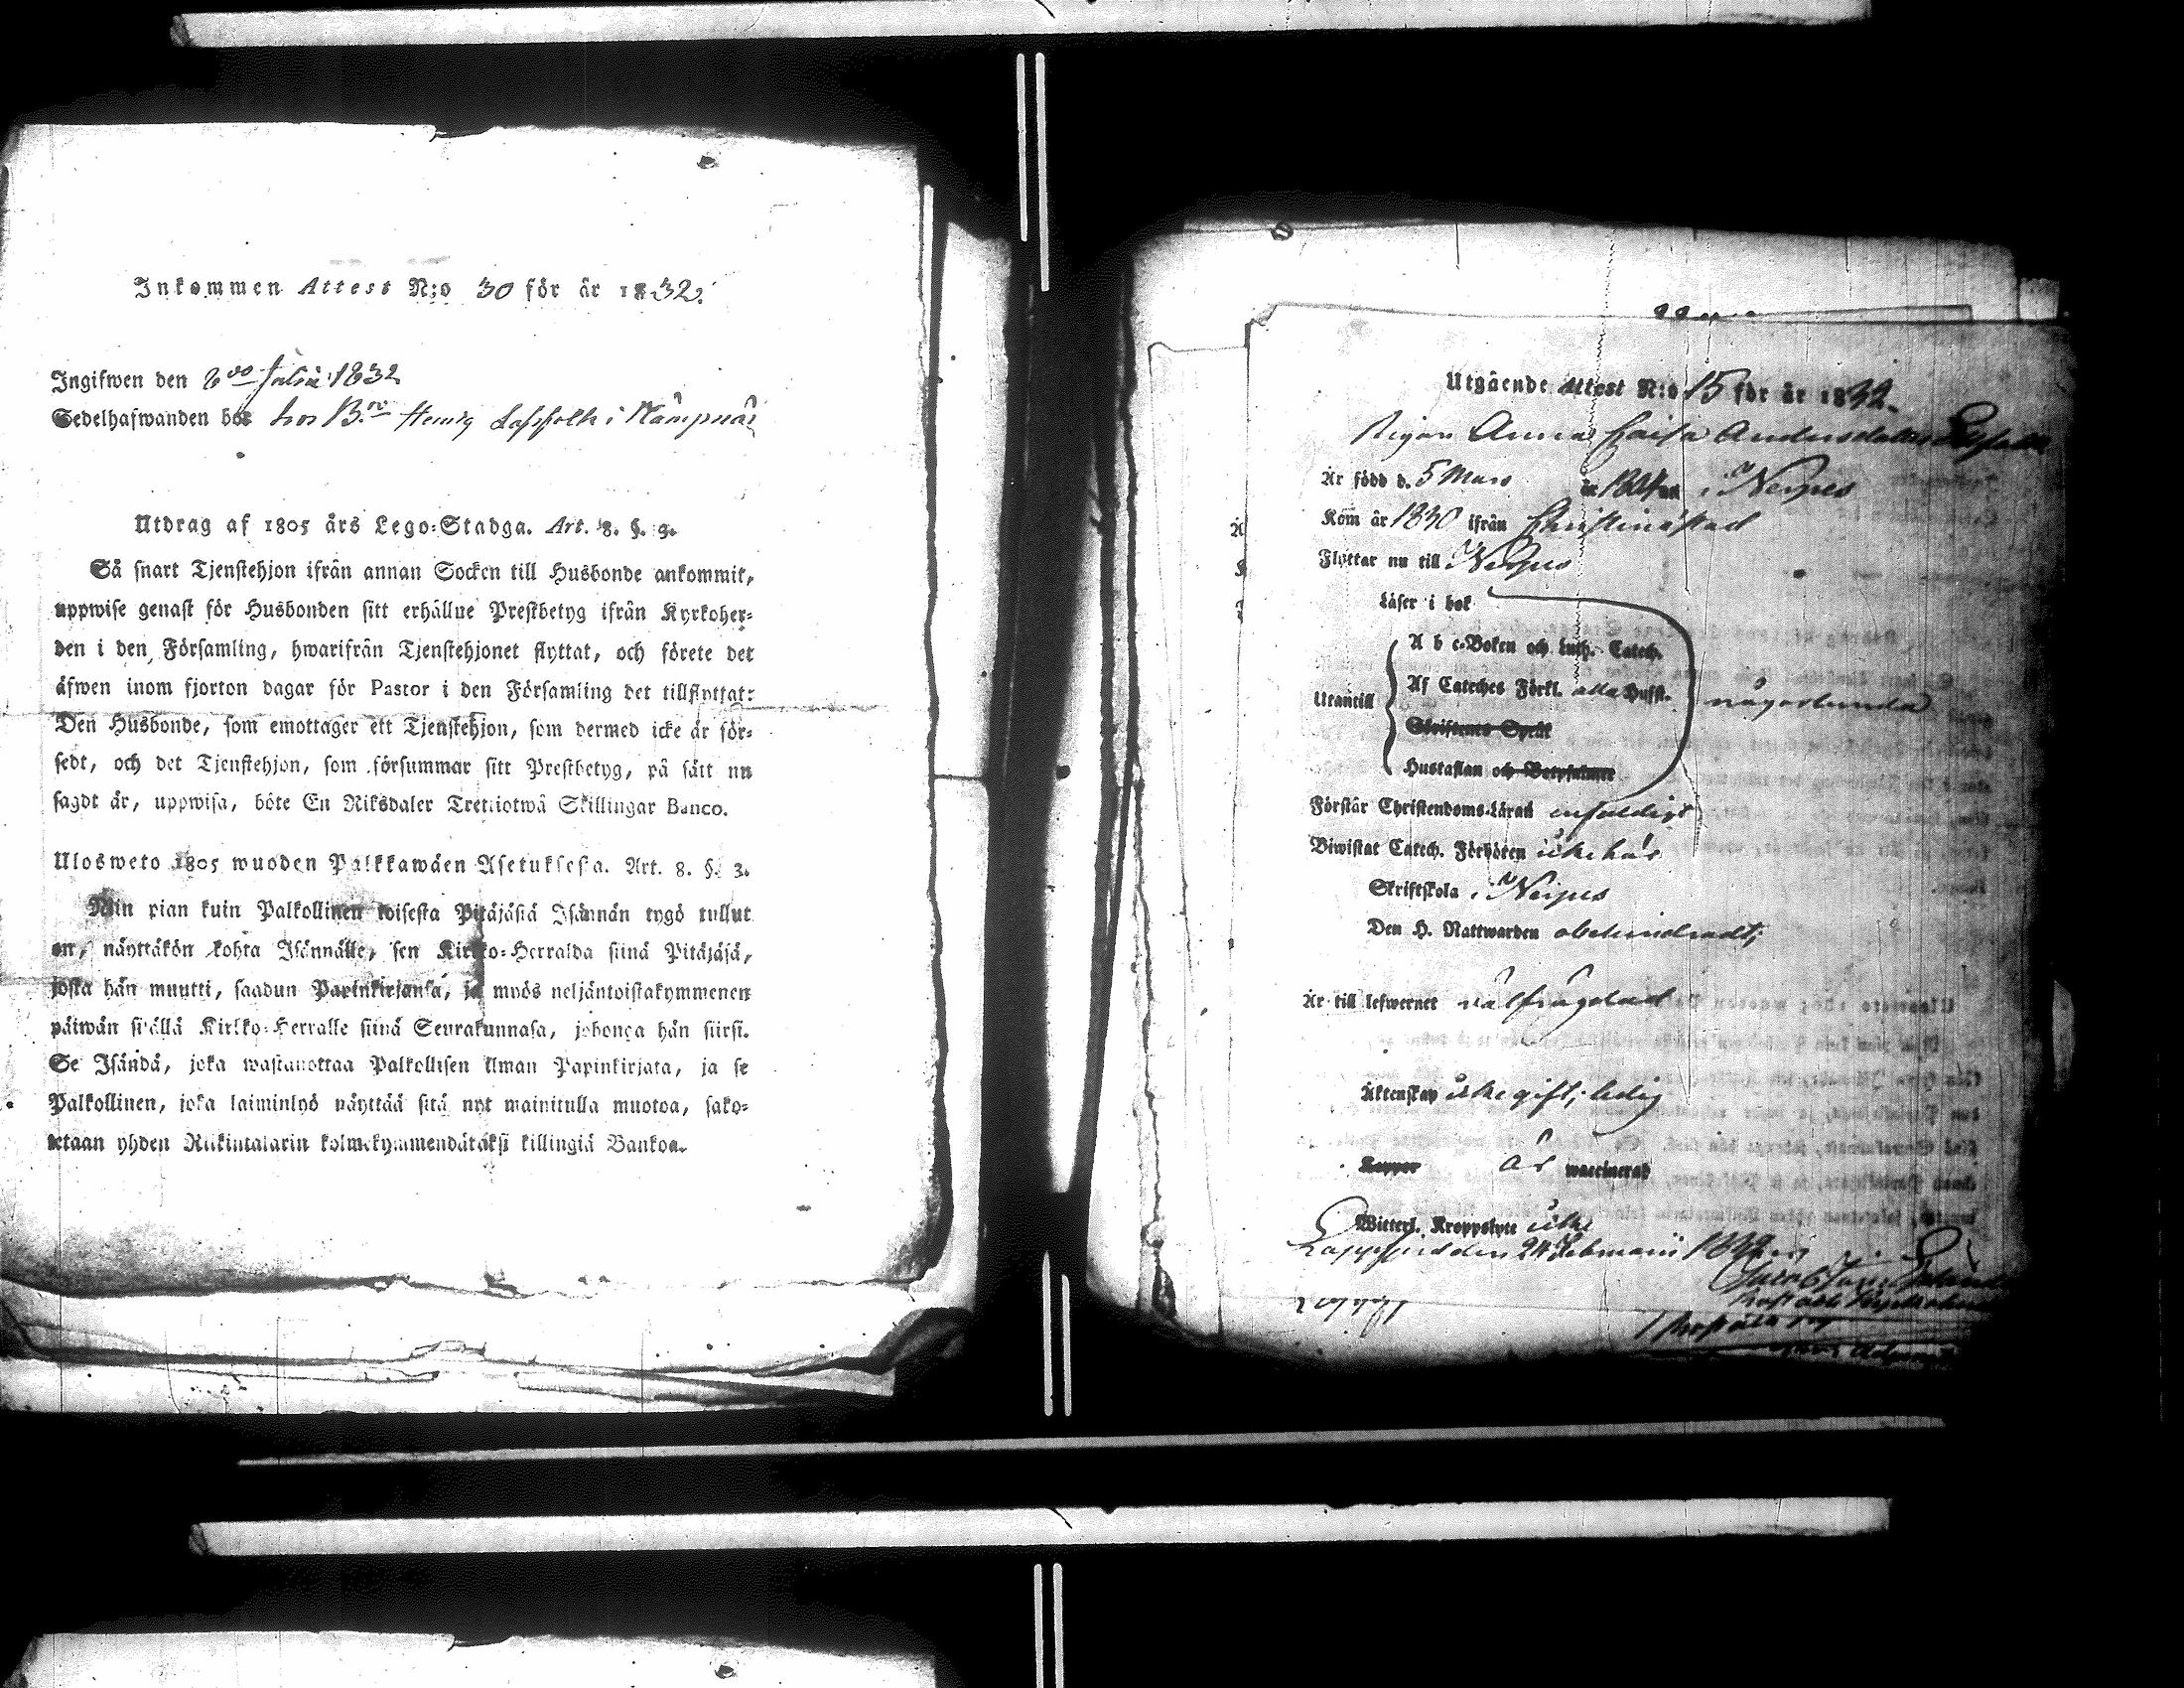 Inkommen Attest N:o 30 för år 1832.
Ingifwen den Julii 1832
Sedelhafwanden hos hos B.n Henrig Lassfolk i Nämpnäs
Utdrag af 1805 års Lego-Stadga. Art. 8. §. 3.
Så snart Tjenstehjon ifrån annan Socken till Husbonde ankommit,
uppwise genast för Husbonden sitt erhållne Prestbetyg ifrån Kyrkoher-
den i den Församling, hwarifrån Tjenstehjonet flyttat, och förete det
äfwen inom fjorton dagar för Pastor i den Församling det tillflyttat:
Den Husbonde, som emottager ett Tjenstehjon, som dermed icke är för-
sedt, och det Tjenstehjon, som försummar sitt Prestbetyg, på sätt nu
sagdt är, uppwisa, böte En Riksdaler Trettiotwå Skillingar Banco.
Ulosweto 1805 wuoden Palkkawäen Asetuksesta. Art. 8. §. 3.
Niin pian kuin Palkollinen toisesta Pitäjästä Isännän tygö tullut
on, näyttäkön kohta Isännälle, sen Kirkko-Herralda siinä Pitäjäsä,
josta hän muutti, saadun Papinkirjansa, ja myös neljäntoistakymmenen
päiwän sisällä Kirkko-Herralle siinä Seurakunnasa, johonga hän siirsi.
Se Isändä, joka wastanottaa Palkollisen ilman Papinkirjata, ja se
Palkollinen, joka laiminlyö näyttää sitä nyt mainitulla muotoa, sako-
tetaan yhden Riikintalarin kolmekymmendätäksi killingiä Bankoa.
Utgående Attest N:o 15 för år 1832.
Pigan Anna Caisa Andersdotter
Är född d. 5 Mars år 1804 i Nerpes
Kom år 1830 ifrån Christinæstad
Flyttar nu till Nerpes
Läser i bok
A b c-Boken och Luth. Catech.
Utantill Af Cateches Förkl. alla Hufst. någorlunda
Skriftenes Språk
Hustaflan och Botpsalmer
Förstår Christendoms-Läran enfaldigt
Biwistat Catech. Förhören icke här
Skriftskola i Nerpes
Den H. Nattwarden obehindradt,
Är till lefwernet välfrägdad
Äktenskap icke gift, ledig
Koppor är waccinerad
Witterl. Kroppslyte icke
Lappfjerd den 24 Februarii 1832